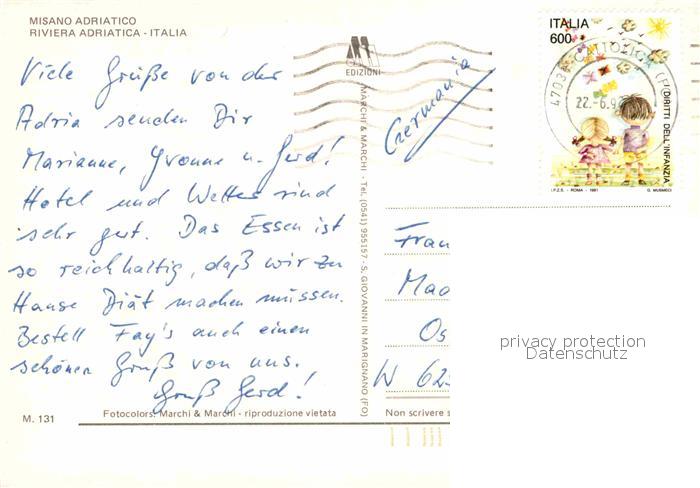 MISANO ADRIATICO
RIVIERA ADRIATICA - ITALIA
Viele Grüße von der
Adria senden Dir
Marianne, Yvonne u. Gerd!
Hotel und Wetter sind
sehr gut. Das Essen ist
so reichhaltig, daß wir zu
Hause Diät machen müssen.
Bestell Fay's auch einen
schönen Gruß von uns.
Gruß Gerd!
M. 131
Fotocolors: Marchi & Marchi - riproduzione vietata
EDIZIONI
MARCHI & MARCHI - Tel. (0541) 955157 - S. GIOVANNI IN MARIGNANO (FO)
Germania
ITALIA
600
47033 CATTOLICA (FO)
22.-6.9
DIRITTI DELL'INFANZIA
I.P.Z.S. - ROMA - 1991
G. MUSMECI
Fran
Mad
Os
W 62
Non scrivere s
privacy protection
Datenschutz